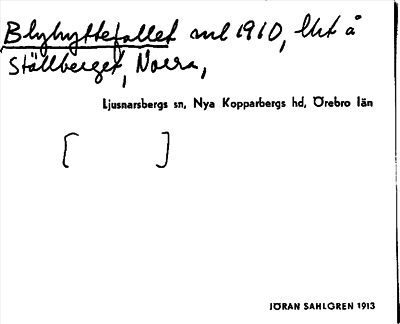 Blyhyttefallet avl 1910, Uts å
Ställberget, Norra,
Ljusnarsbergs sn, Nya Kopparbergs hd, Örebro län
[ ]
JÖRAN SAHLGREN 1913